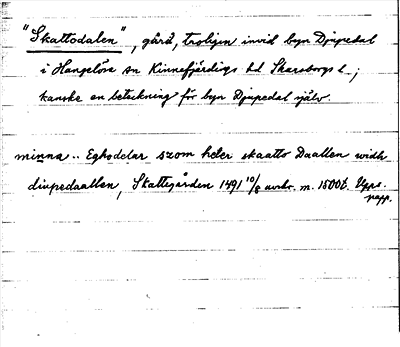 "Skattodalen", gård, troligen invid byn Djupedal
i Hangelösa sn Kinnefjärdings hd Skaraborgs l.;
kanske en beteckning för byn Djupedal själv.
minna .. Eghodelar szom heter skaatto Daallen widh
diupedaallen, Skattegården 1491 10/8 avskr. m. 1500t. Upps.
papp.